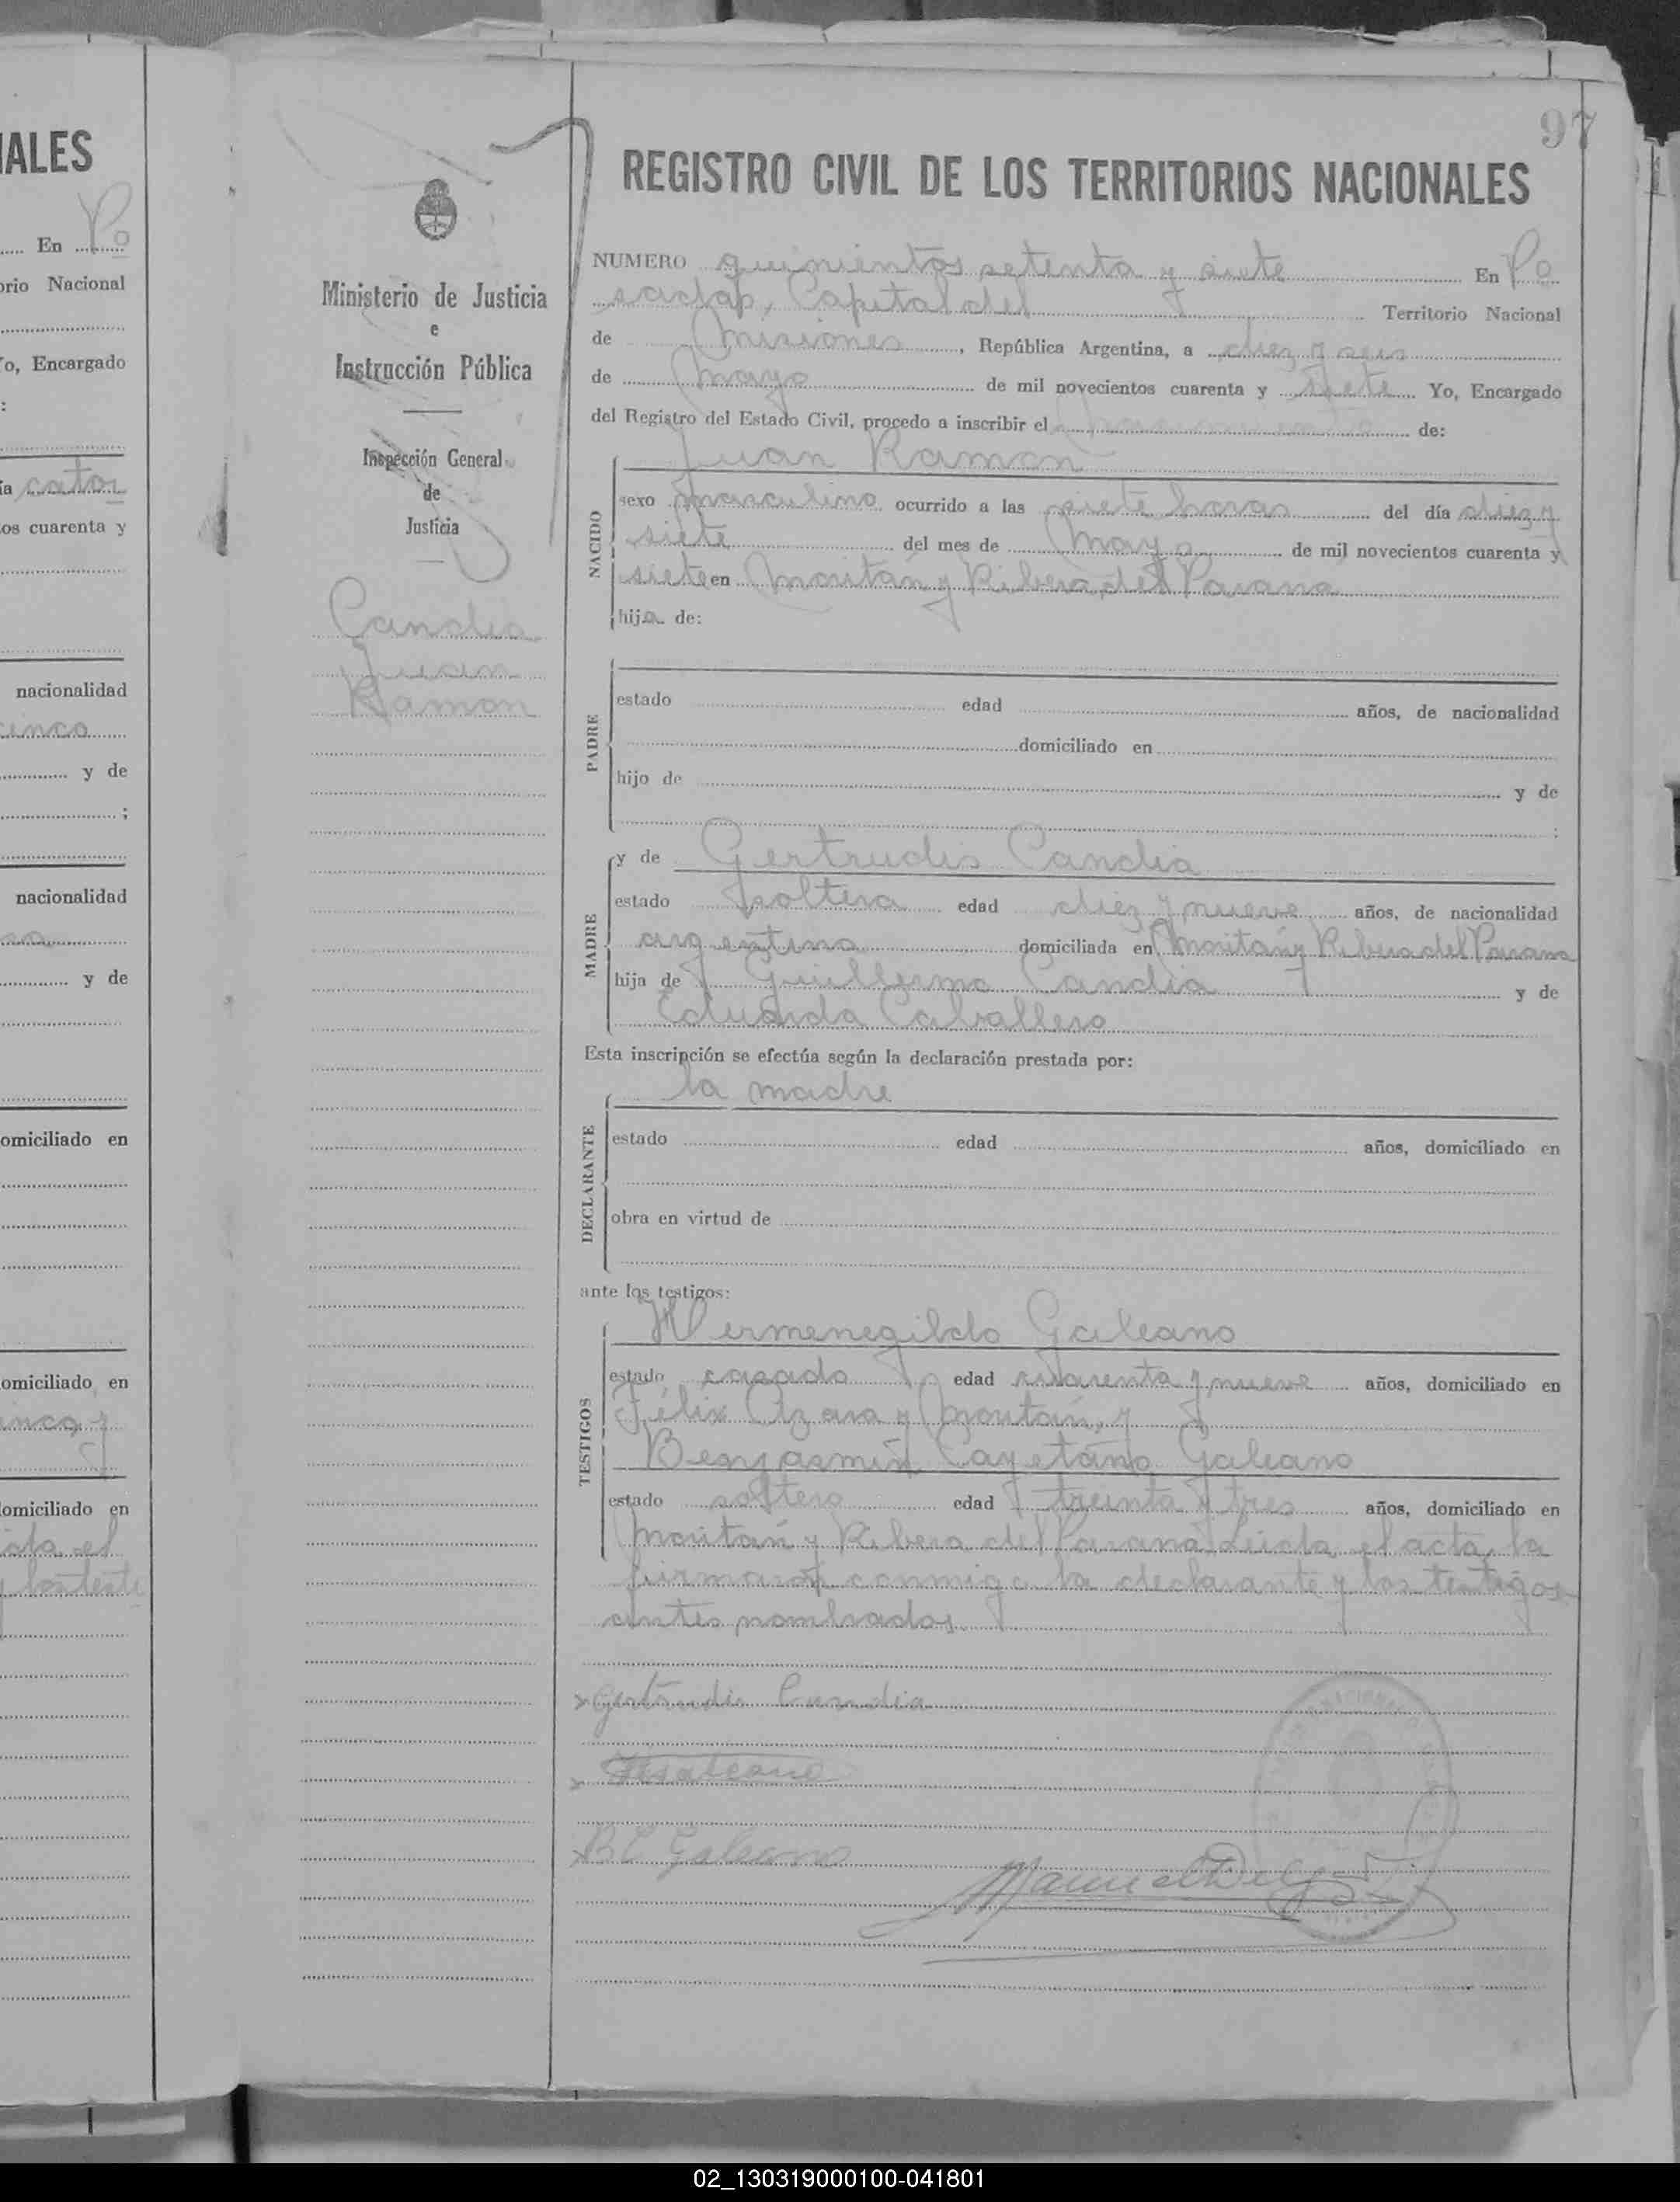 IALES
En Po
orio Nacional
Yo, Encargado
:
ía cator
os cuarenta y
nacionalidad
cinco
y de
;
nacionalidad
y de
omiciliado en
omiciliado en
cinco y
omiciliado en
el
y los testi
97
Ministerio de Justicia
e
Instrucción Pública
Inspección General
de
Justicia
Candia
Juan
Ramon
REGISTRO CIVIL DE LOS TERRITORIOS NACIONALES
NUMERO quinientos setenta y siete En Po
sadas, Capital del Territorio Nacional
de Misiones, República Argentina, a diez y seis
de Mayo de mil novecientos cuarenta y siete Yo, Encargado
del Registro del Estado Civil, procedo a inscribir el nacimiento de:
Juan Ramon
NACIDO
sexo masculino ocurrido a las siete horas del día diez y
siete del mes de Mayo de mil novecientos cuarenta y
siete en y Ribera del Parana
hijo de:
PADRE
estado edad años, de nacionalidad
domiciliado en
hijo de y de
:
MADRE
y de Gertrudis Candia
estado soltera edad diez y nueve años, de nacionalidad
argentina domiciliada en y Ribera del Parana
hija de Guillermo Candia y de
Eduarda Caballero
Esta inscripción se efectúa según la declaración prestada por:
la madre
DECLARANTE
estado edad años, domiciliado en
obra en virtud de
ante los testigos:
TESTIGOS
Hermenegildo Galeano
estado casado edad cuarenta y nueve años, domiciliado en
Félix Azara y y
Benjamin Cayetano Galeano
estado soltero edad treinta y tres años, domiciliado en
y Ribera del Parana Leida el acta, la
firmaron conmigo la declarante y los testigos
antes nombrados
x Gertrudis Candia
x HGaleano
x BC Galeano
Manuel
02_130319000100-041801